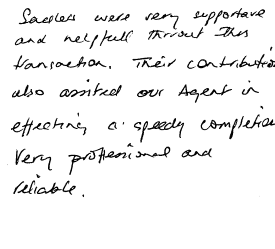 were very supportave
and helpfull throout this
transaction. Their contribution
also assited our Agent in
effecting a speedy completion
Very proffessional and
reliable.